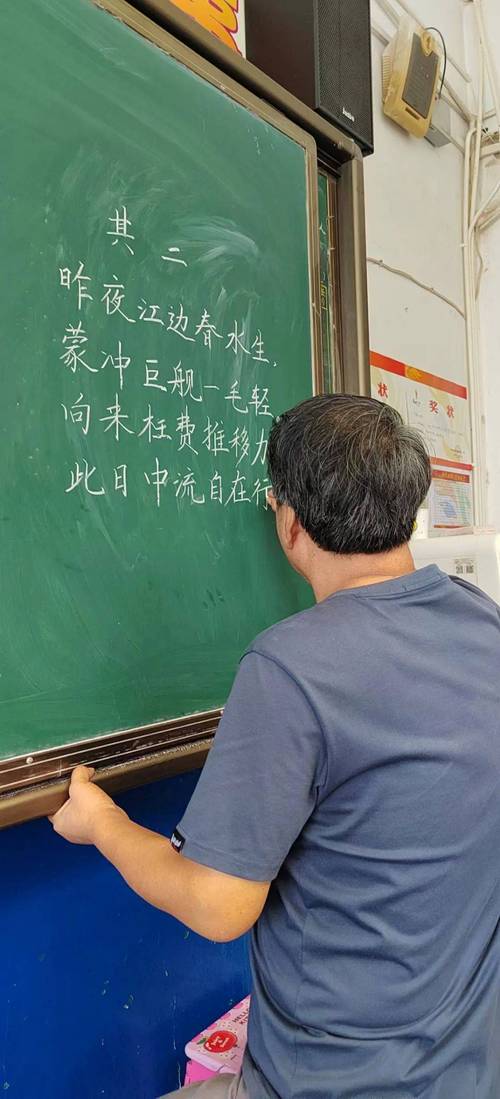 其二
昨夜江边春水生，
蒙冲巨舰一毛轻。
向来枉费推移力
此日中流自在行
状
奖状